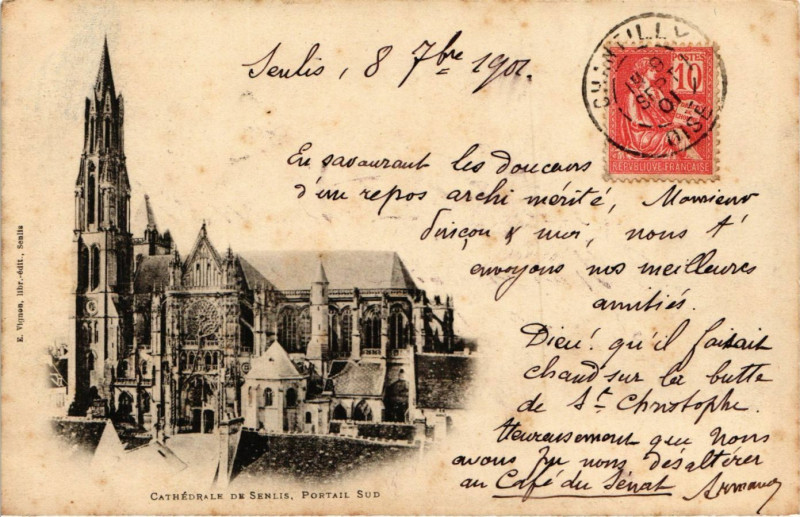 Senlis, 8 7bre 1901.
CHANTILLY
19
9
SEPT
01
OISE
POSTES
10
REPUBLIQUE FRANÇAISE
En savourant les douceurs
d'un repos archi mérité, Monsieur
& moi, nous t'
envoyons nos meilleures
amitiés.
Dieu! qu'il faisait
chaud sur la butte
de St. Christophe.
Heureusement que nous
avons pu nous désaltérer
au Café du Sénat Armand
E. Vignon, libr.-édit., Senlis
CATHÉDRALE DE SENLIS, PORTAIL SUD